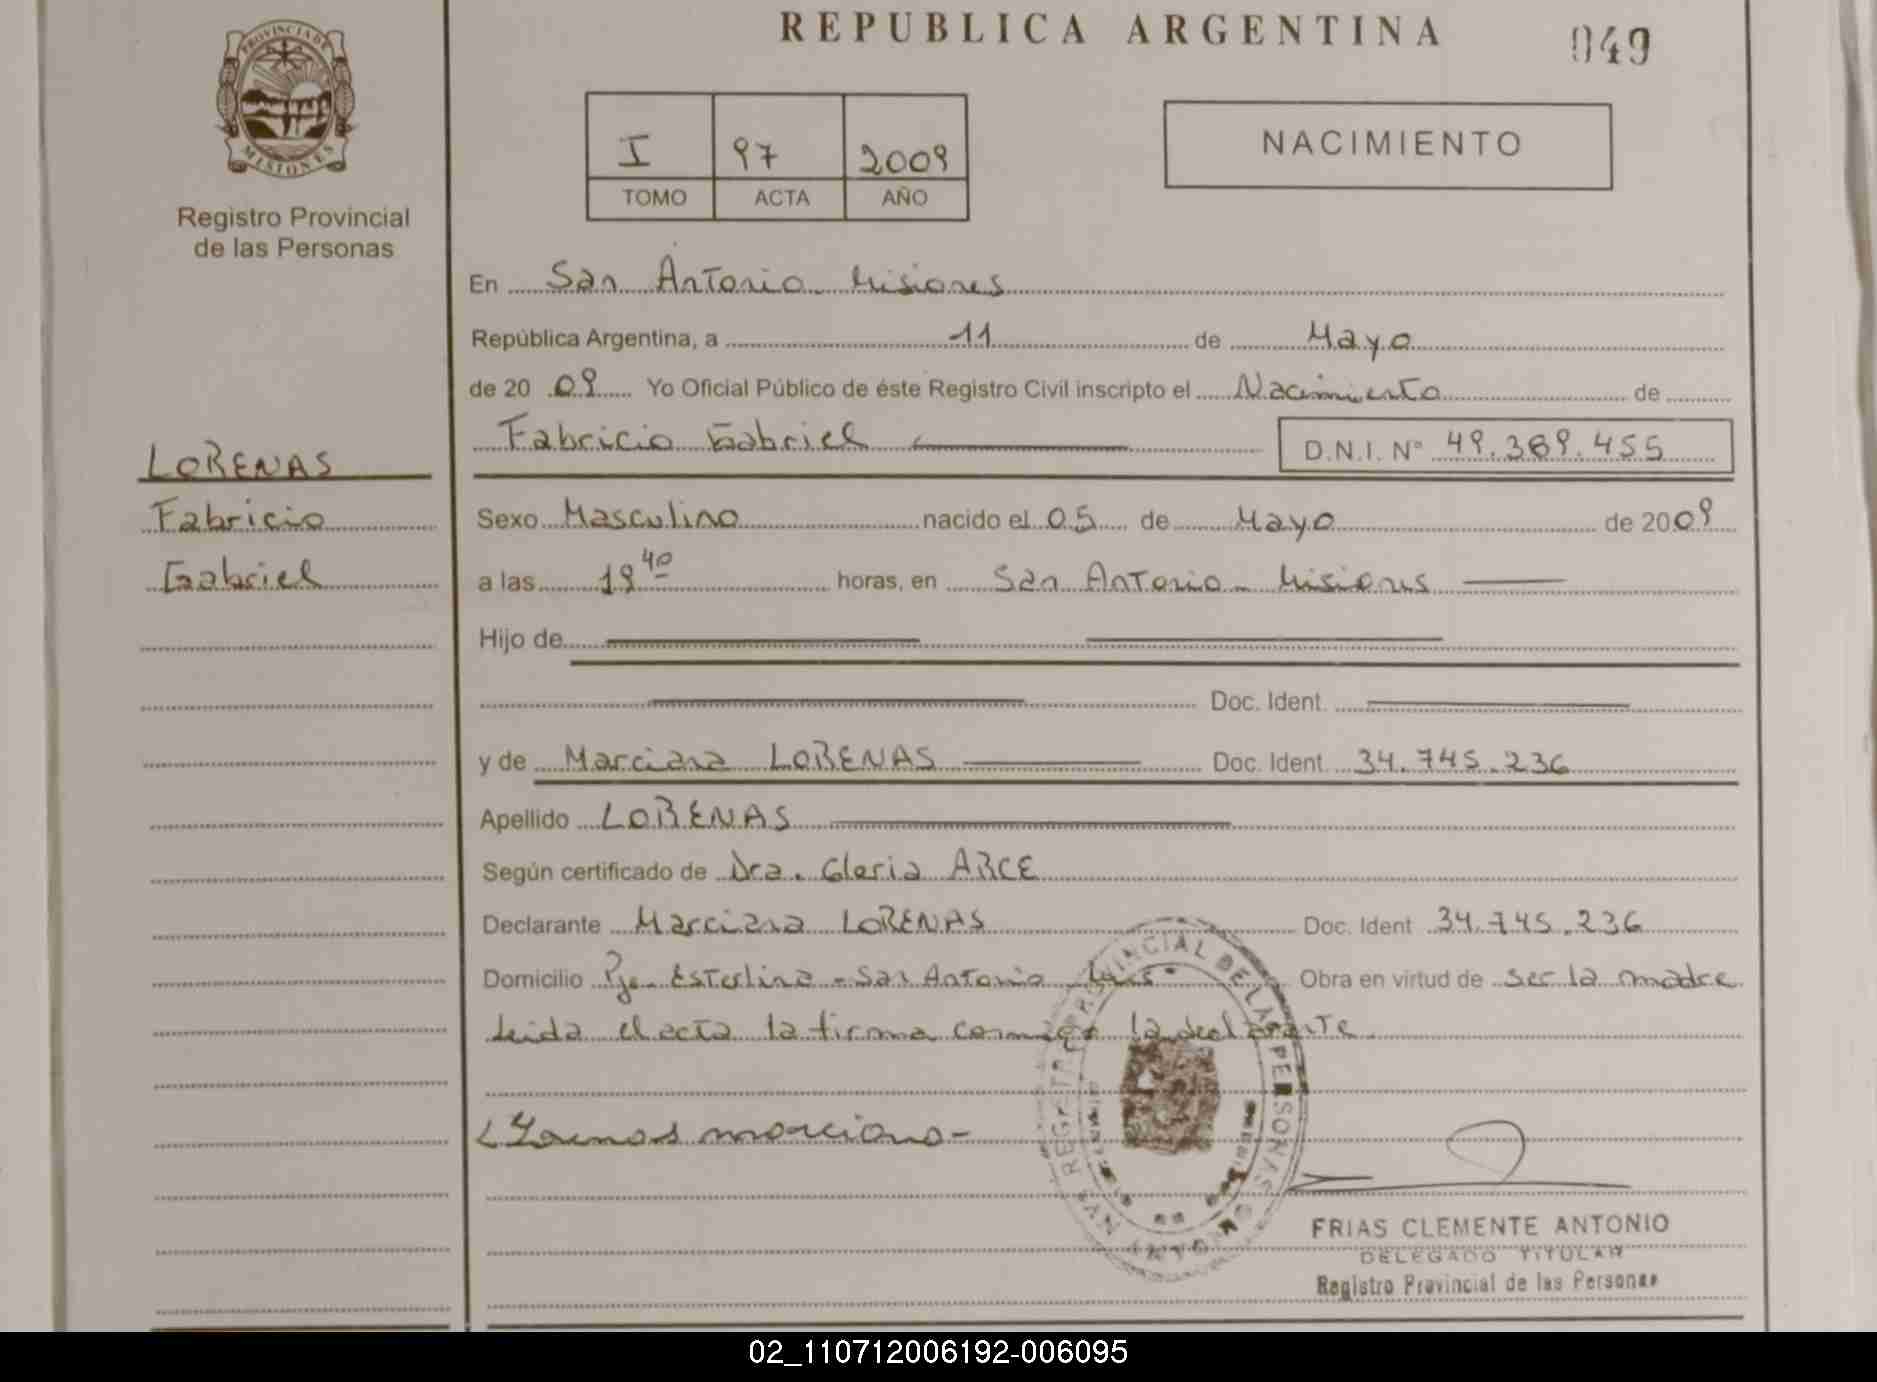 REPUBLICA ARGENTINA
049
PROVINCIA DE
MISIONES
Registro Provincial
de las Personas
I 97 2009
TOMO ACTA AÑO
NACIMIENTO
En San Antonio Misiones
República Argentina, a 11 de Mayo
de 20 09 Yo Oficial Público de éste Registro Civil inscripto el Nacimiento de
Fabricio Gabriel D.N.I. Nº 49.389.455
LORENAS
Fabricio
Gabriel
Sexo Masculino nacido el 05 de Mayo de 2009
a las 19 40 horas, en San Antonio - Misiones
Hijo de
Doc. Ident.
y de Marciana LORENAS Doc. Ident. 34.745.236
Apellido LORENAS
Según certificado de Dra. Gloria ARCE
Declarante Marciana LORENAS Doc. Ident 34.745.236
Domicilio Pje. Esterlina - San Antonio Obra en virtud de ser la madre
Leida el acta la firma conmigo la declarante.
marciana -
REGISTRO PROVINCIAL DE LAS PERSONAS
FRIAS CLEMENTE ANTONIO
DELEGADO TITULAR
Registro Provincial de las Personas
02_110712006192-006095